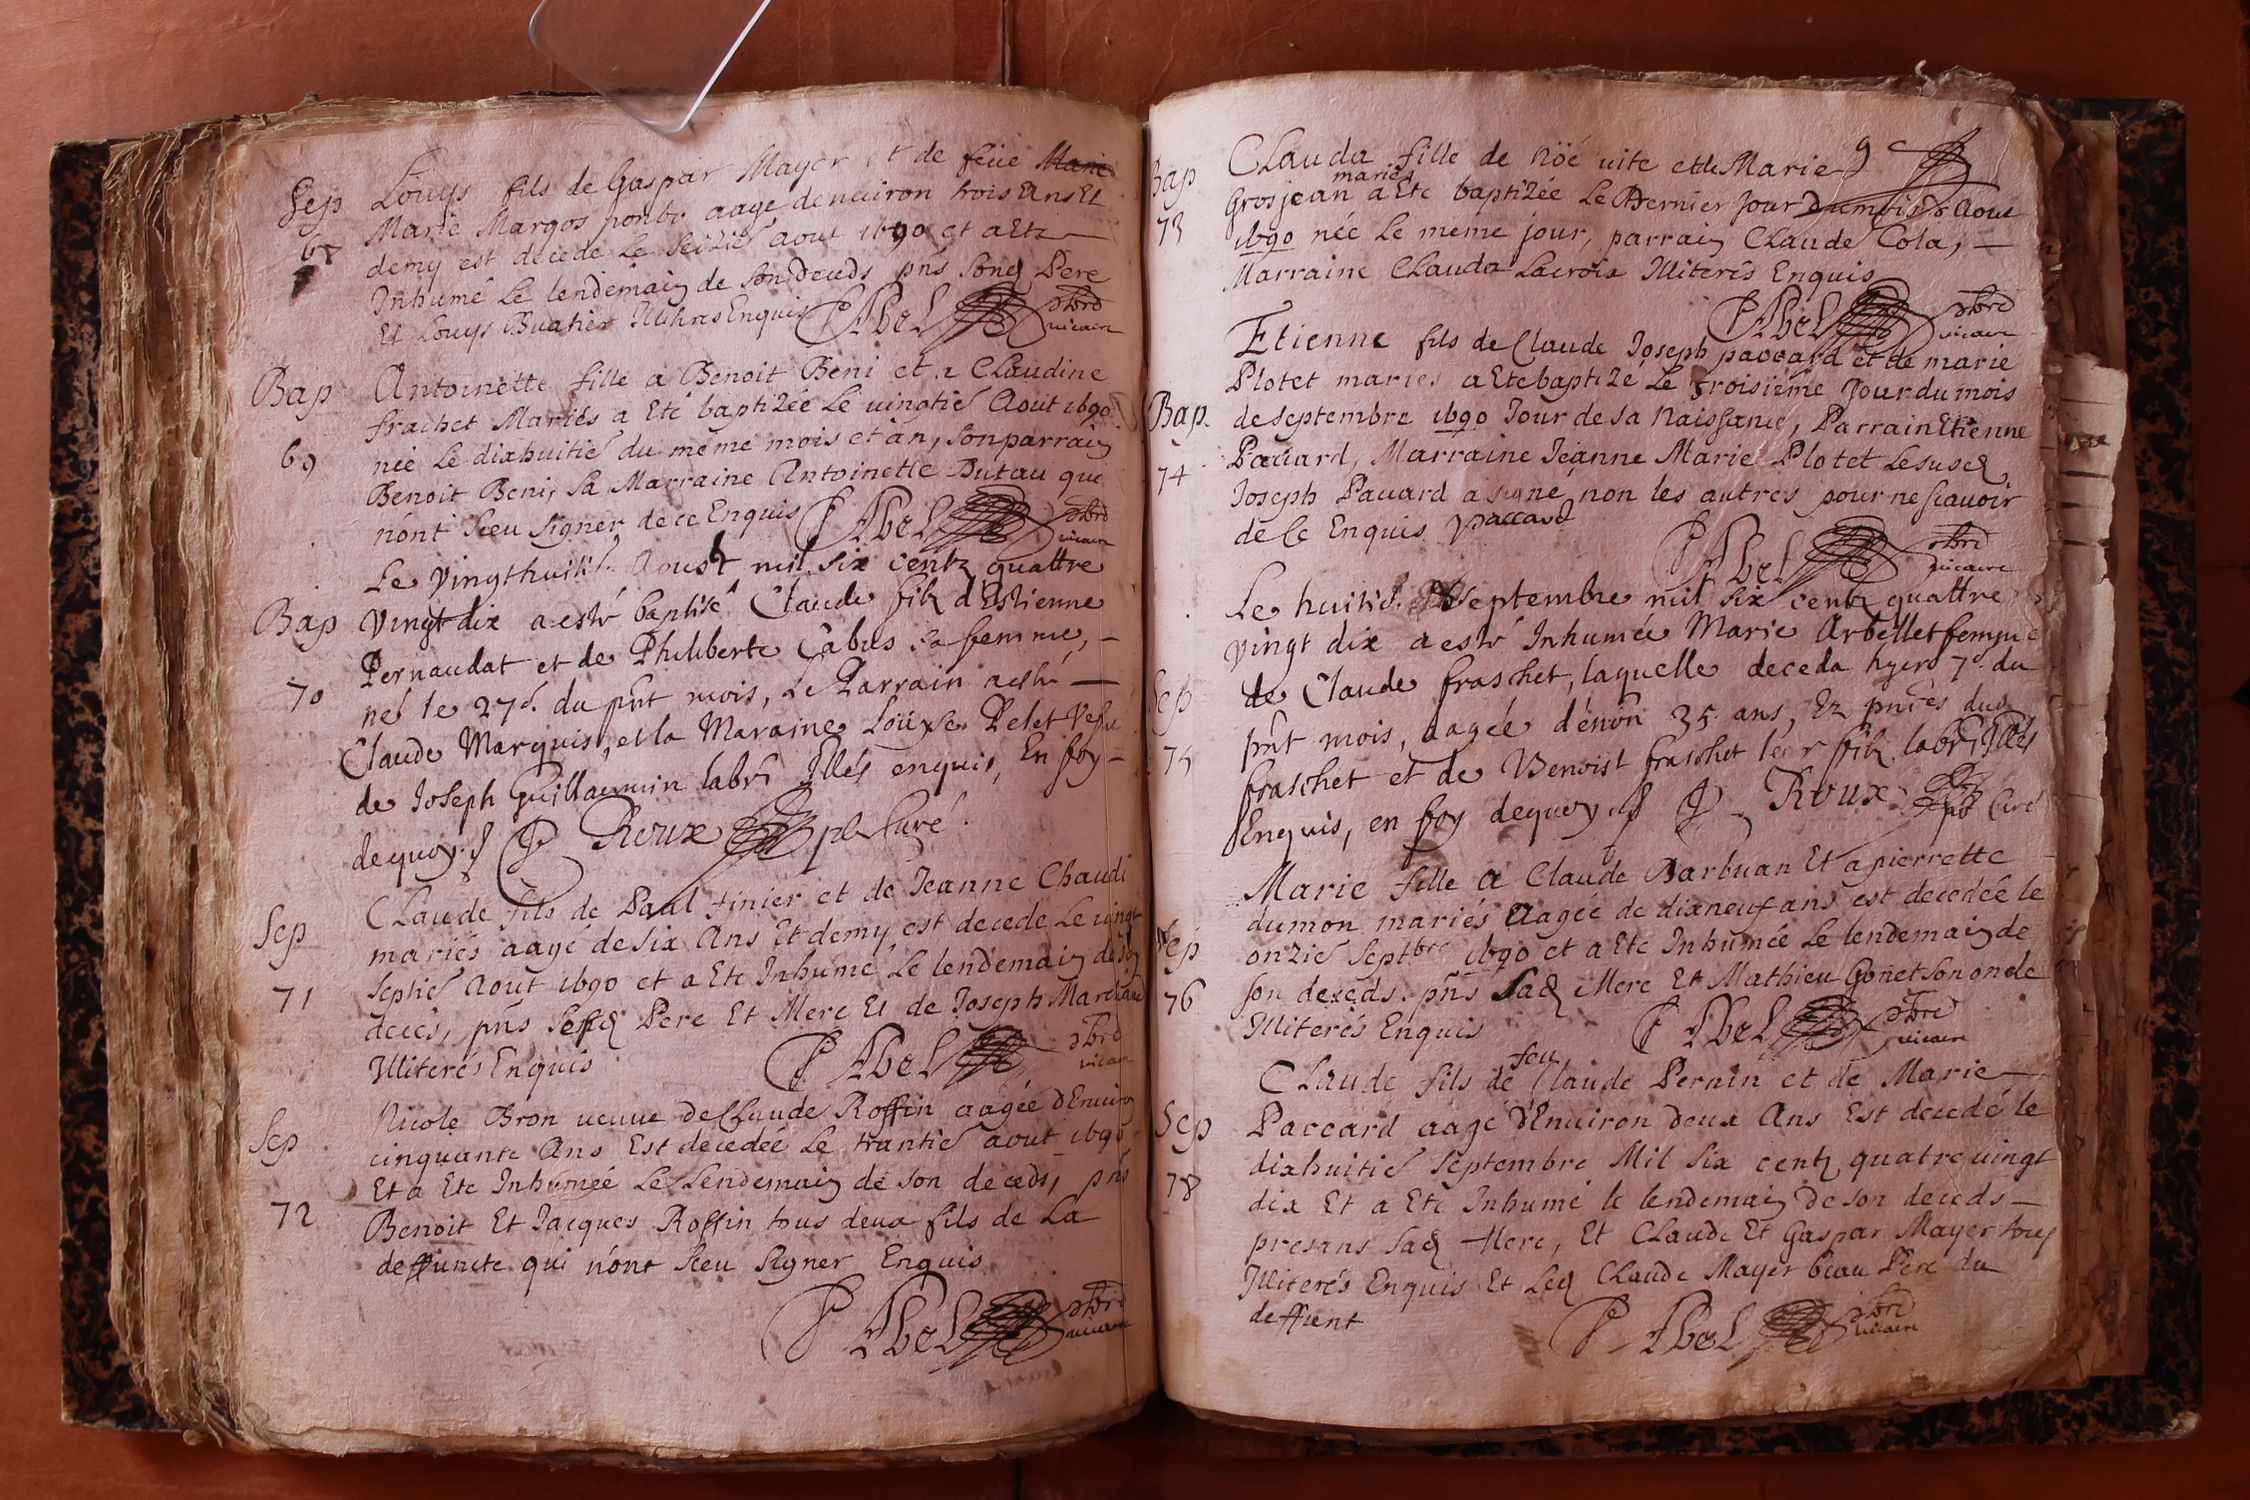 Sep
68
Louys fils de Gaspar Mayer et de feüe Marie
Marie Margos aage denuiron trois Ans Et
demy est decede le seizie aout 1690 et a Ete
Inhumé Le lendemain de son deceds pns Sond Pere
Et Louys Buatier Enquis P Abel pbre vicaire
Bap
69
Antoinette fille a Benoit Beni et a Claudine
frachet Mariés a Eté baptizée Le uingtie Aout 1690
née Le dixhuitie du même mois et an, son parrain
Benoit Beni, Sa Marraine Antoinette Butau qui
nónt Sceu signer de ce Enquis P Abel pbre vicaire
Bap
70
Le vingthuiti. Aoust mil six centz quattre
vingt dix a esté baptisé Claude filz d'Estienne
Pernaudat et de Philiberte Cabus sa femme,
né le 27e. du pnt mois, Le Parrain a esté
Claude Marquis, et la Maraine Loüyse Pelet vefue
de Joseph Guillaumin labr Illés enquis, En foy
dequoy. P Roux pb Curé.
Sep
71
Claude fils de Paul finier et de Jeanne Chaudi
mariés aagé de six Ans Et demy est decede Le uingt
septie Aout 1690 et a Ete Inhumé Le lendemain de son
decés, pns Sesd Pere Et Mere Et de Joseph
Illiterés Enquis P Abel pbre vicaire
Sep
72
Nicole Bron ueuue de Claude Roffin aagée d'Enuiron
cinquante Ans Est decedée Le trantie aout 1690
Et a Ete Inhumée Le Lendemain de son deceds, pns
Benoit Et Jacques Roffin tous deux fils de La
deffuncte qui nónt Sceu Signer Enquis
P Abel pbre vicaire
Bap
73
Clauda fille de Nöé uite et de Marie
Grosjean mariés a Ete baptizée Le Dernier Jour Du mois d Aout
1690 née Le meme jour, parrain Claude Cola,
Marraine Clauda Lacroix Illiterés Enquis
P Abel pbre vicaire
Bap.
74
Etienne fils de Claude Joseph paccard et de marie
Plotet mariés a Ete baptizé Le troisiéme Jour du mois
de septembre 1690 Jour de sa Naissance, Parrain Etienne
Pacard, Marraine Jeanne Marie Plotet Le susd
Joseph Pacard a signé non les autres pour ne scauoir
de Ce Enquis paccard
P Abel pbre vicaire
Sep
75
Le huitie. Septembre mil six centz quattre
vingt dix a esté Inhumée Marie Arbellet femme
de Claude fraschet, laquelle deceda hyer 7e. du
pnt mois, aagée d'énön 35. ans, Ez pnces dud
fraschet et de Benoist fraschet leur filz labrs Illés
Enquis, en foy dequoy P Roux pb Curé
Sep
76
Marie fille a Claude Barbuan Et a pierrette
dumon mariés aagée de dixneuf ans est decedée le
onzie Septbre 1690 et a Ete Inhumée Le lendemain de
son deceds. pns Sad Mere Et Mathieu Gonet son oncle
Illiterés Enquis P Abel pbre vicaire
Sep
78
Claude fils de feu Claude Pernin et de Marie
Paccard aagé d'Enuiron deux Ans Est decedé le
dixhuitie Septembre Mil Six centz quatre uingt
dix Et a Ete Inhumé le lendemain de son deceds
presans Sad Mere, Et Claude Et Gaspar Mayer tous
Illiterés Enquis Et Led Claude Mayer beau Pere du
deffunt P Abel pbre vicaire